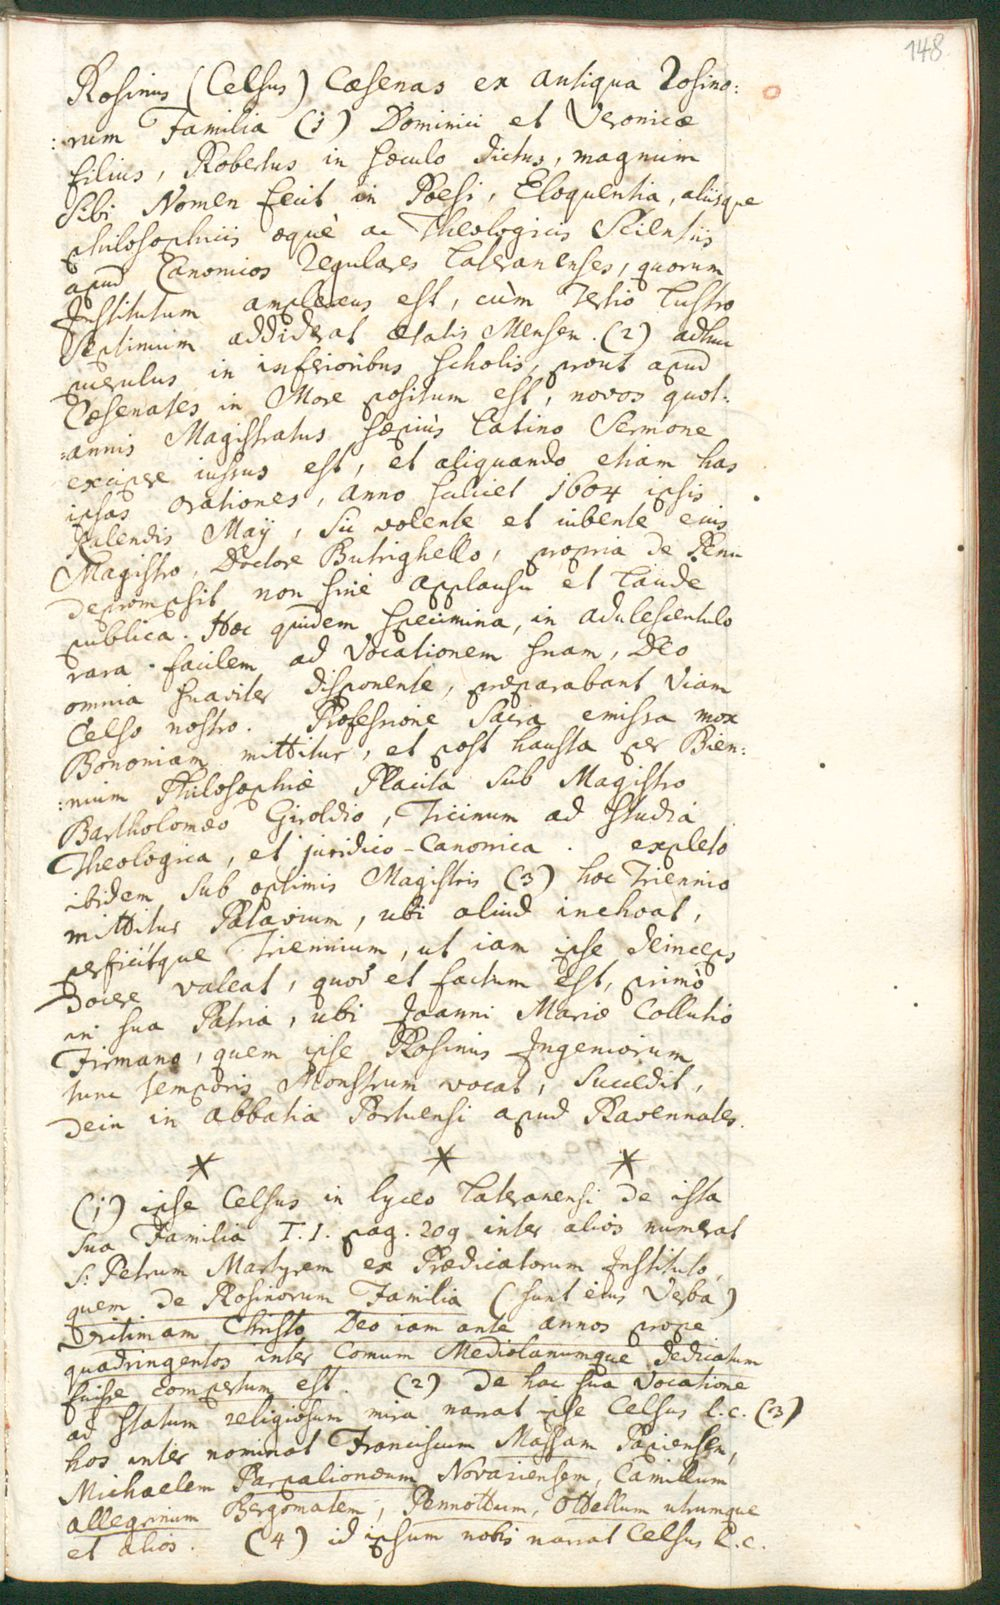 148
Rosinus (Celsus) Cæsenas ex antiqua Rosino:
:rum Familia (1) Dominici et Veronicæ
filius, Robertus in sæculo dictus, magnum
sibi Nomen fecit in Poesi, Eloquentia, aliisque
philosophicis æquè ac Theologicis Scientiis
apud Canonicos Regulares Lateranenses, quorum
Institutum amplexus est, cùm Tertio Lustro
septimum addiderat ætatis Mensem. (2) adhuc
puerulus in inferioribus scholis, prout apud
Cæsenates in More positum est, novos quot:
:annis Magistratus sæpiùs Latino Sermone
excipere iussus est, et aliquando etiam has
ipsas orationes, anno scilicet 1604 ipsis
Kalendis Maÿ, sic volente et iubente eius
Magistro, Doctore Butrighello, propria de Penu
deprompsit non sine applausu et laude
publica. Hæc quidem specimina, in adulescentulo
rara. facilem ad Vocationem suam, Deo
omnia suaviter disponente, præparabant viam
Celso nostro. Professione Sacra emissa mox
Bononiam mittitur, et post hausta per Bien:
:nium Philosophiæ Placita sub Magistro
Bartholomæo Giroldio, Ticinum ad studia
Theologica, et juridico-Canonica. expleto
ibidem sub optimis Magistris (3) hoc Triennio
mittitur Patavium, ubi aliud inchoat,
perficitque Triennium, ut iam ipse deinceps
docere valeat, quod et factum est, primò
in sua Patria, ubi Joanni Mariæ Collutio
Firmano, quem ipse Rosinus Ingeniorum
tunc temporis Monstrum vocat, succedit,
dein in abbatia Portuensi apud Ravennates.
* * *
(1) ipse Celsus in lyceo Lateranensi de ista
sua Familia T. I. pag. 209 inter alios numerat
S: Petrum Martyrem ex Prædicatorum Instituto,
quem de Rosinorum Familia (sunt eius Verba)
Victimam Christo Deo iam ante annos prope
quadringentos inter Comum Mediolanumque dedicatum
fuisse compertum est. (2) De hac sua Vocatione
ad statum religiosum mira narrat ipse Celsus l.c. (3)
hos inter nominat Franciscum Massam Papiensem,
Michaelem Parpalionæum Novariensem, Camillum
allegrinum Bergomatem, Pennottum, Ottellum utrumque
et alios. (4) id ipsum nobis narrat Celsus l.c.